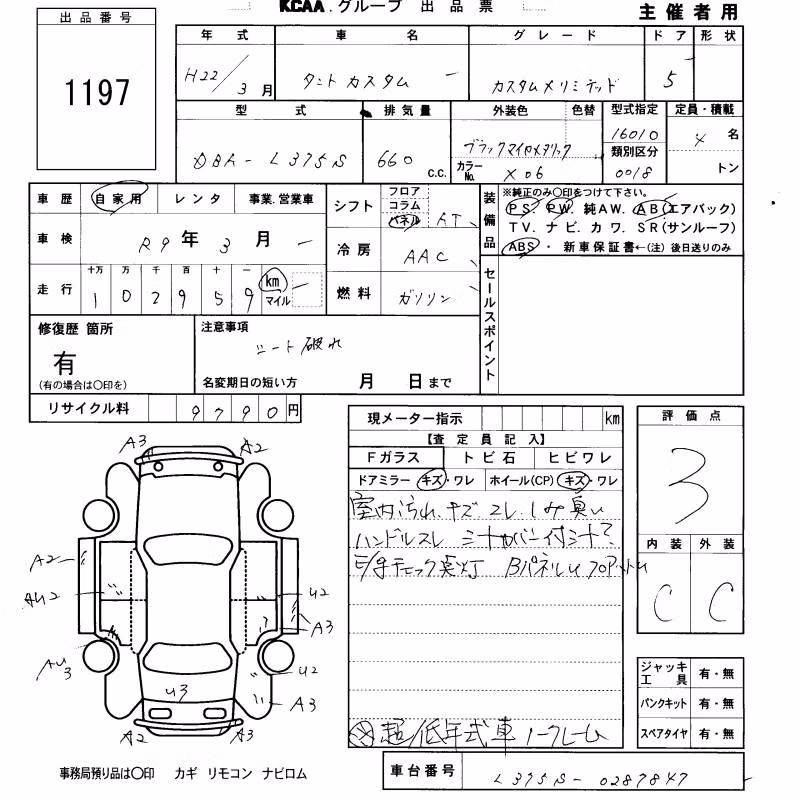 KCAA.グループ 出品票
主催者用
出品番号
1197
年式 車名 グレード ドア 形状
H22/3月 タント カスタム カスタムXリミテッド 5
型式 排気量 外装色 色替 型式指定 定員・積載
DBA-L375S 660 c.c. ブラックマイカメタリック 16010 4名
カラーNo. X06 類別区分 0018 トン
車歴 自家用 レンタ 事業.営業車
車検 R9年3月
走行 十万 万 千 百 十 一
102959 km マイル
シフト フロア コラム パネル AT
冷房 AAC
燃料 ガソリン
装備品 ※純正のみ〇印をつけて下さい。
PS. PW. 純AW. AB(エアバック)
TV. ナビ. カワ. SR(サンルーフ)
ABS・ 新車保証書←(注) 後日送りのみ
セールスポイント
修復歴 箇所
有
(有の場合は〇印を)
注意事項
シート破れ
名変期日の短い方 月 日まで
リサイクル料 9790円
現メーター指示 km
【査定員記入】
Fガラス トビ石 ヒビワレ
ドアミラー キズ・ワレ ホイール(CP) キズ・ワレ
室内汚れ、キズ スレ しみ 臭い
ハンドルスレ
チェック 灯 Bパネル
超/低年式車 ノークレーム
評価点
3
内装 外装
C C
ジャッキ工具 有・無
パンクキット 有・無
スペアタイヤ 有・無
A3 A2
A2
AU2 U2
A3
AU3 U2
U3 A3
A2 A3
事務局預り品は〇印 カギ リモコン ナビロム
車台番号 L375S-0287847